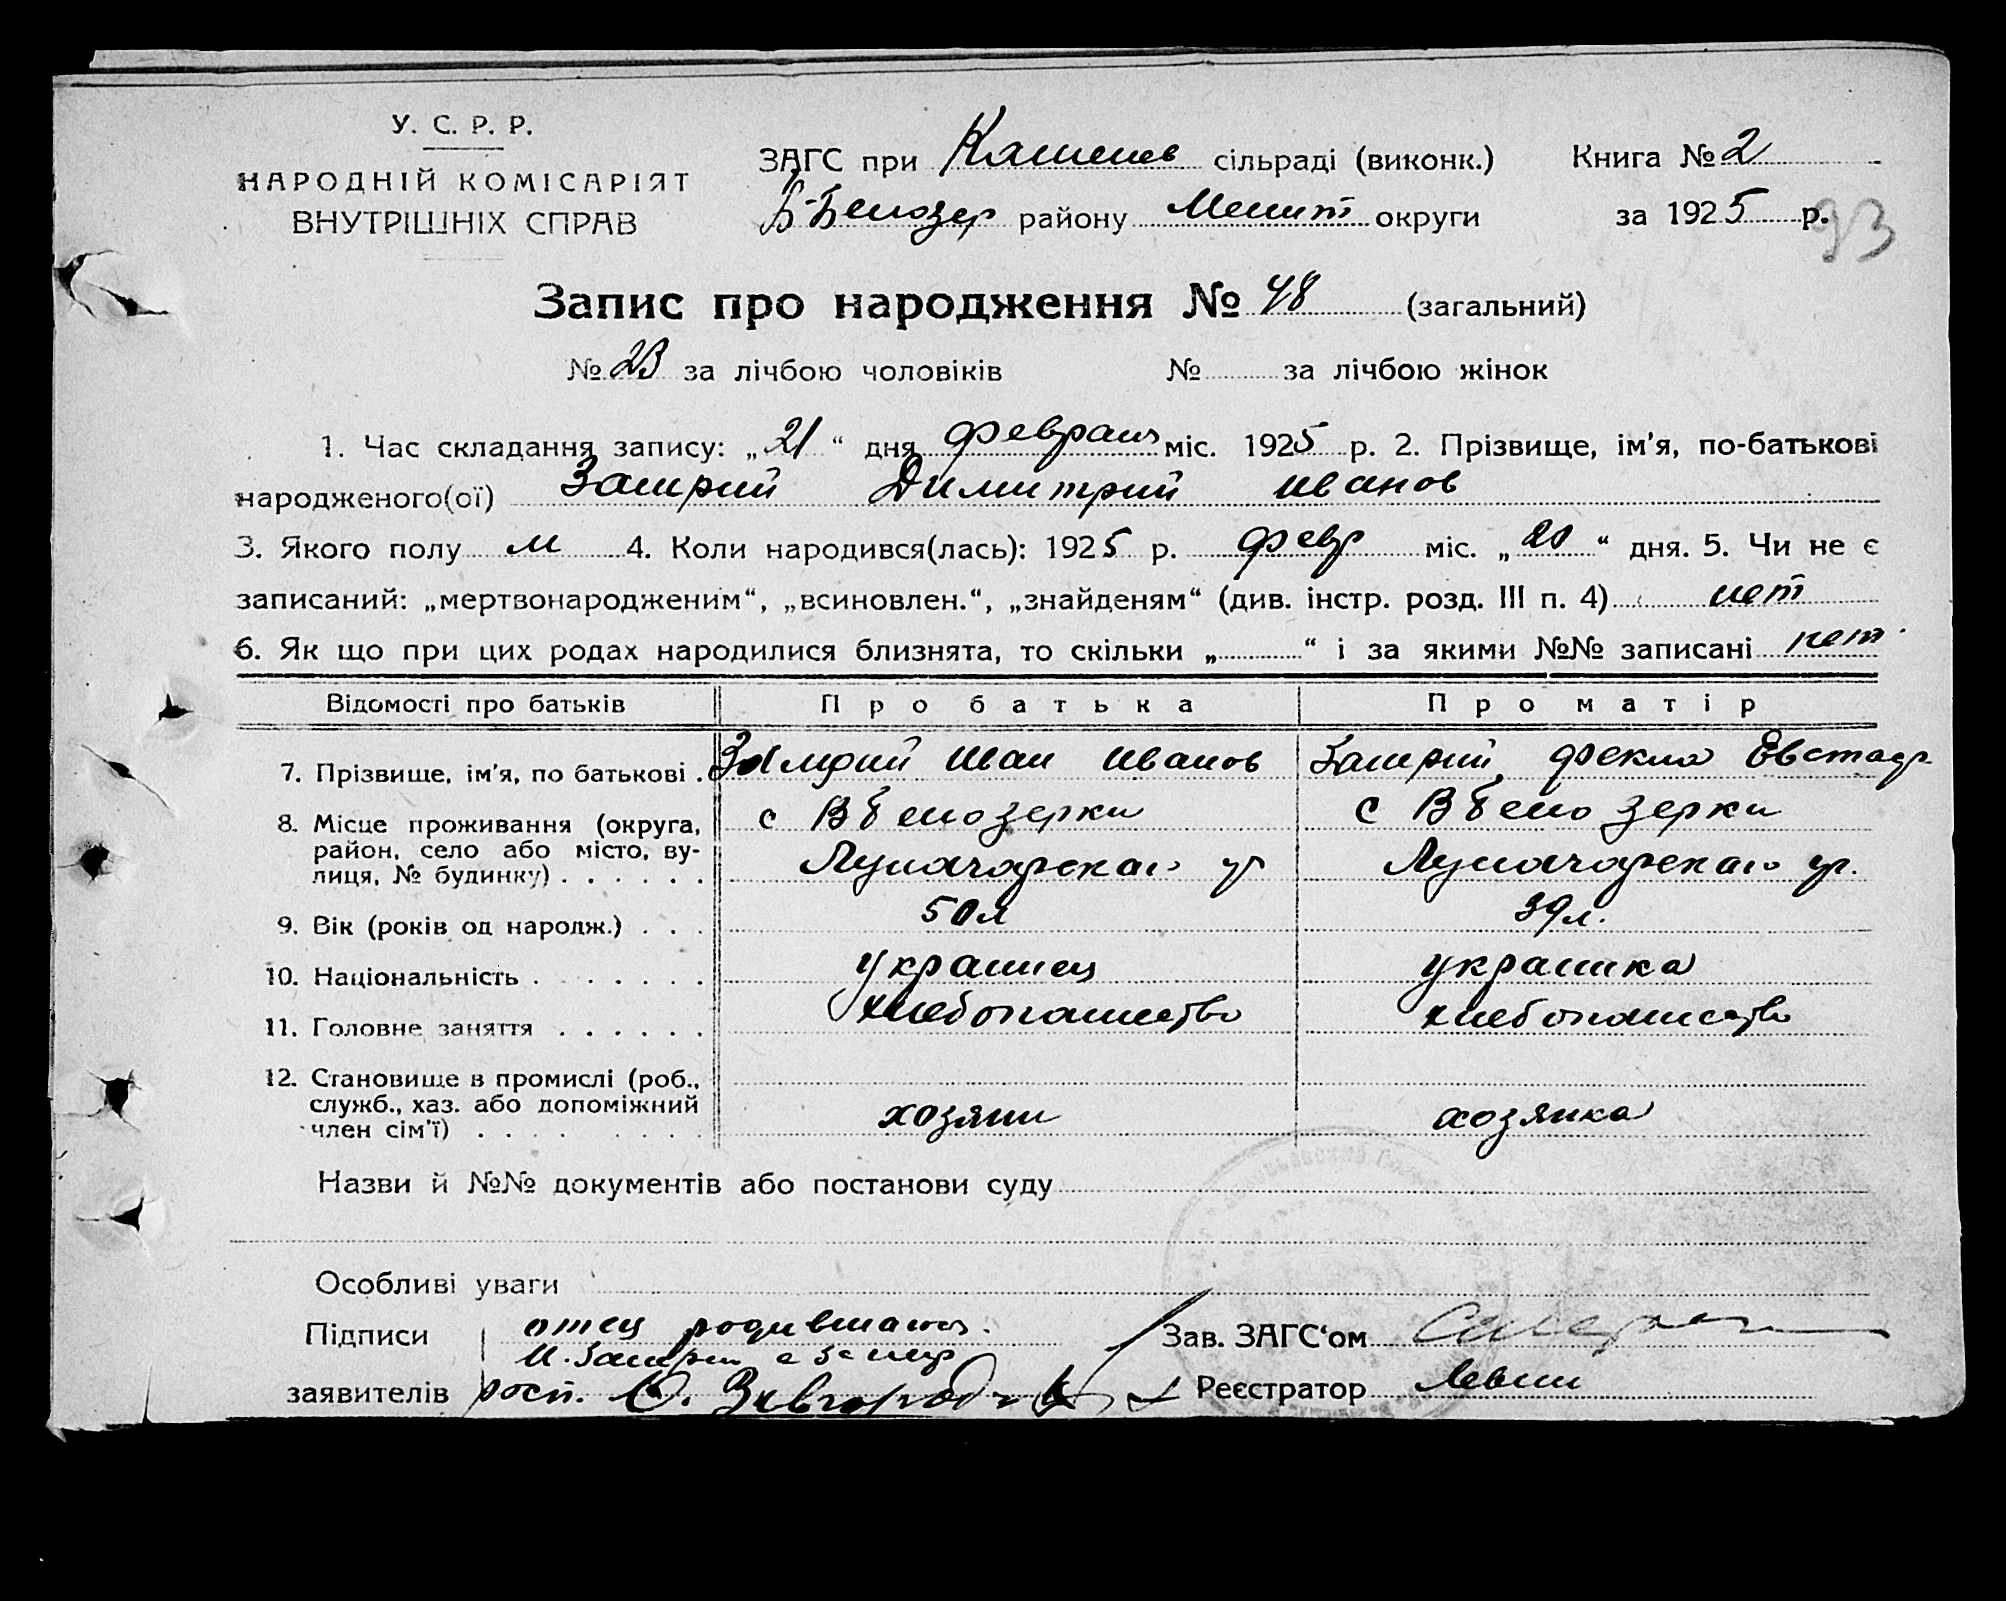 У. С. Р. Р.
НАРОДНІЙ КОМІСАРІЯТ
ВНУТРІШНІХ СПРАВ
ЗАГС при сільраді (виконк.) Книга № 2
В-Белозер району Мелит округи за 1925 р.
93
Запис про народження № 48 (загальний)
№ 23 за лічбою чоловіків № за лічбою жінок
1. Час складання запису: „21“ дня февраля міс. 1925 р. 2. Прізвище, ім'я, по-батькові
народженого(ої) Замрий Димитрий Иванов
3. Якого полу м 4. Коли народився(лась): 1925 р. февр міс. „20“ дня. 5. Чи не є
записаний: „мертвонародженим“, „всиновлен.“, „знайденям“ (див. інстр. розд. III п. 4) нет
6. Як що при цих родах народилися близнята, то скільки „ “ і за якими №№ записані нет
Відомості про батьків Про батька Про матір
7. Прізвище, ім'я, по батькові . Замрий Иван Иванов Замрий Фекла Евстафр
8. Місце проживання (округа, с Вбелозерки с Вбелозерки
район, село або місто, ву-
лиця, № будинку) . . . . . . Луначарскаго ул Луначарскаго ул.
9. Вік (років од народж.) . . . 50л 39л.
10. Національність . . . . . . украинец украинка
11. Головне заняття . . . . . . хлебопашество хлебопашество
12. Становище в промислі (роб.,
служб., хаз. або допоміжний
член сім'ї) . . . . . . . . хозяин хозяйка
Назви й №№ документів або постанови суду
Особливі уваги
Підписи отец родившагося. Зав. ЗАГС‘ом
И. Замрий
заявителів росп. Реєстратор Левин